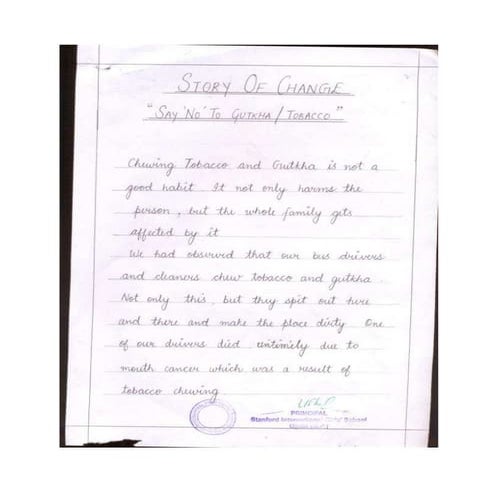 STORY OF CHANGE
"SAY 'NO' TO GUTKHA / TOBACCO"
Chewing Tobacco and Gutkha is not a
good habit. It not only harms the
person, but the whole family gets
affected by it
We had observed that our bus drivers
and cleaners chew tobacco and gutkha.
Not only this, but they spit out here
and there and make the place dirty. One
of our drivers died untimely due to
mouth cancer which was a result of
tobacco chewing
PRINCIPAL
Stanford International School